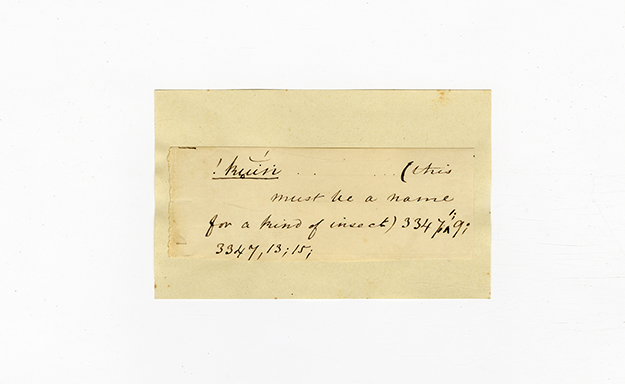 ! kŭ́ïn . . . . . . (this
must be a name
for a kind of insect) 3347, 9;
3347, 13; 15;